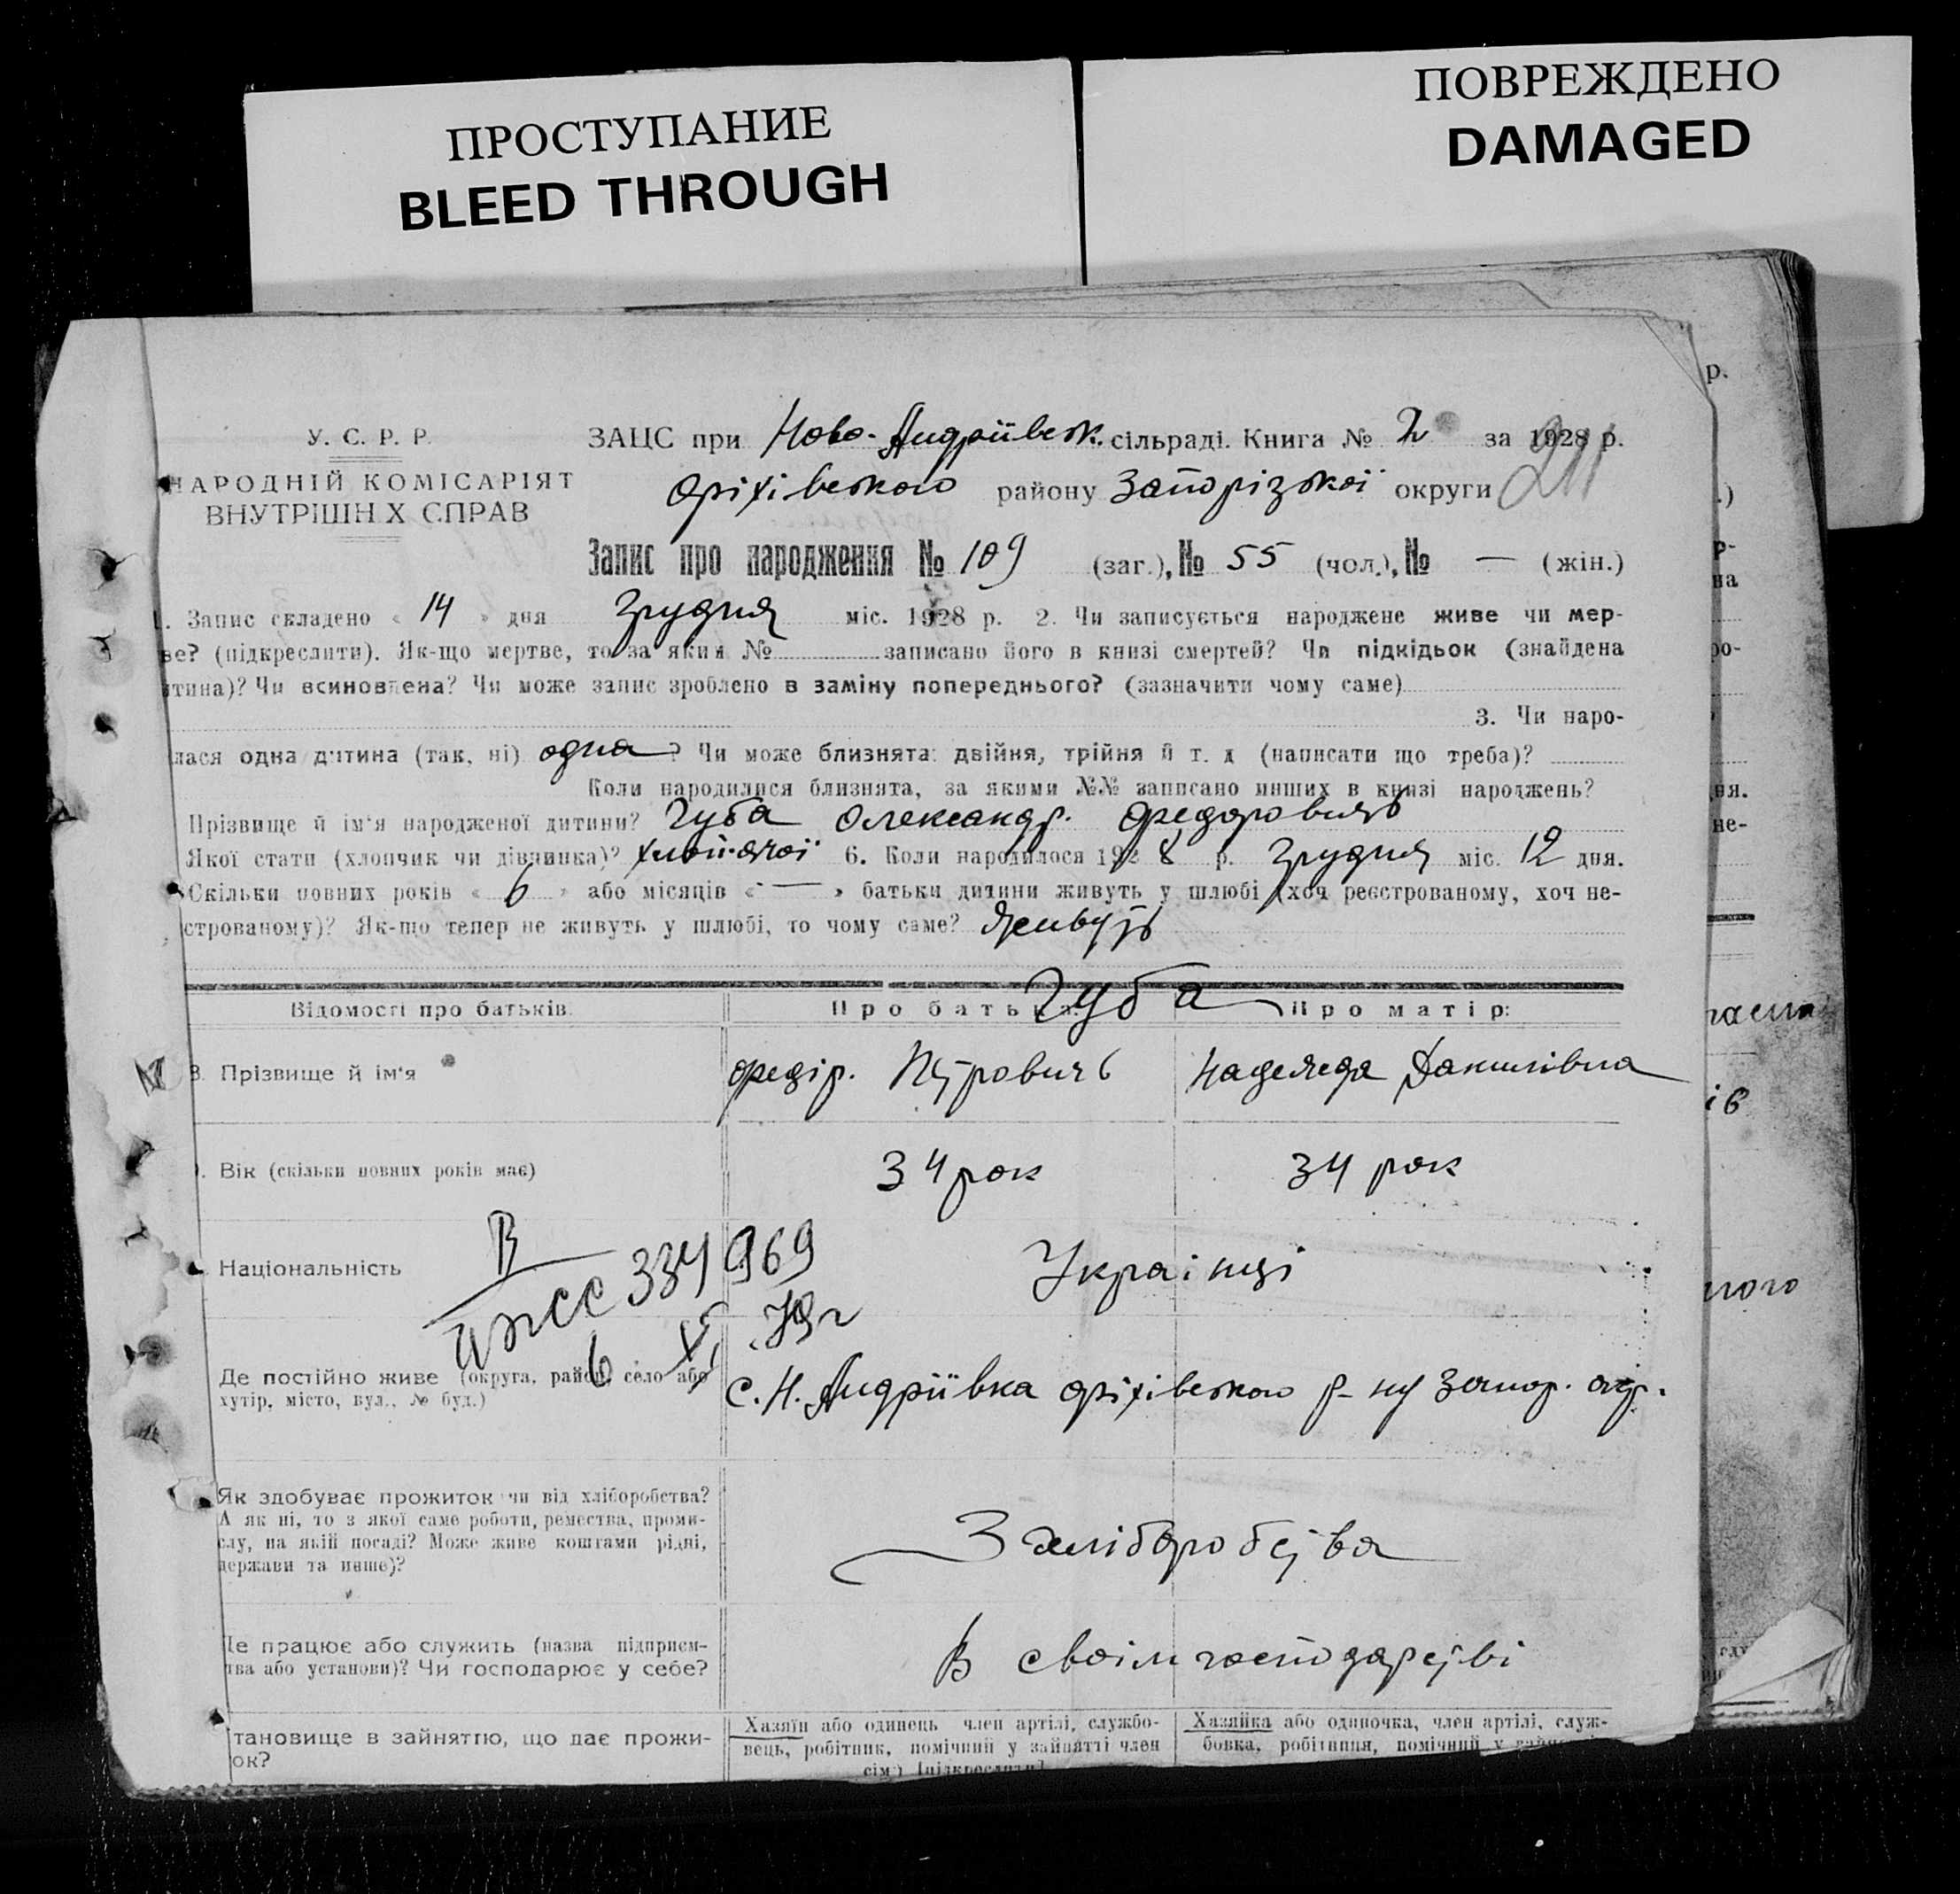 ПРОСТУПАНИЕ
BLEED THROUGH
ПОВРЕЖДЕНО
DAMAGED
р.
У. С. Р. Р.
НАРОДНІЙ КОМІСАРІЯТ
ВНУТРІШН Х СПРАВ
ЗАЦС при Ново-Андріївськ. сільраді. Книга № 2 за 1928 р.
Оріхівського району Запорізької округи
Запис про народження № 109 (заг.), № 55 (чол.), № — (жін.)
. Запис складено « 14 » дня Грудня міс. 1928 р. 2. Чи записується народжене живе чи мер-
ве? (підкреслити). Як-що мертве, то за яким № записано його в книзі смертей? Чи підкідьок (знайдена
тина)? Чи всиновлена? Чи може запис зроблено в заміну попереднього? (зазначити чому саме)
3. Чи наро-
лася одна дитина (так, ні) одна? Чи може близнята: двійня, трійня й т. д (написати що треба)?
Коли народилися близнята, за якими №№ записано инших в книзі народжень?
Прізвище й ім'я народженої дитини? Губа Олександр. Федоровичь
Якої стати (хлопчик чи дівчинка)? 6. Коли народилося 1928 р. Грудня міс. 12 дня.
Скільки повних років « 6 » або місяців « — » батьки дитини живуть у шлюбі (хоч реєстрованому, хоч не-
строваному)? Як-що тепер не живуть у шлюбі, то чому саме? Живуть
Губа
Відомості про батьків: Про батька: Про матір:
8. Прізвище й ім'я Федір. Петровичь Надежда Данилівна
. Вік (скільки повних років має) 34 рок 34 рок
Національність Українці
334969
Де постійно живе (округа, район, село або
хутір, місто, вул., № буд.)
с. Н. Андріївка Оріхівського р-ну Запор. окр.
Як здобуває прожиток чи від хліборобства?
А як ні, то з якої саме роботи, ремества, проми-
слу, на якій посаді? Може живе коштами рідні,
держави та инше)?
З хліборобства
Де працює або служить (назва підприєм-
тва або установи)? Чи господарює у себе?
В своїм господарстві
тановище в зайняттю, що дає прожи-
ок?
Хазяїн або одинець член артілі, службо-
вець, робітник, помічний у зайнятті член
сім'ї [підкреслити]
Хазяйка або одиночка, член артілі, служ-
бовка, робітниця, помічний у